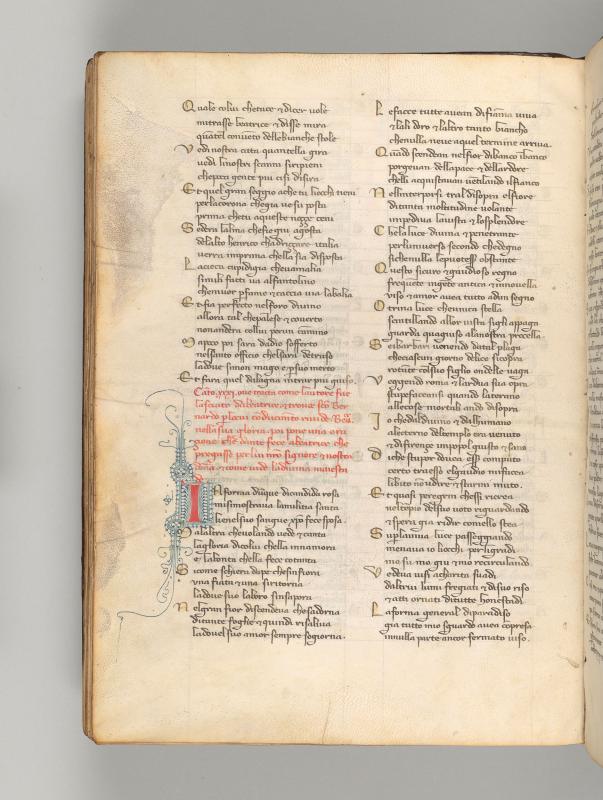 Quale colui che tace & dicer vole
mi trasse beatrice & disse mira
quāt'el cōueto delle bianche stole
Vedi nostra citta quantella gira
uedi linostri scanni si ripieni
che poca gente piu ci si disira
Et quel gran seggio ache tu liocchi tieni
per la corona che gia ue su posta
prima che tu aqueste noççe ceni
Sedera lalma che fie giu agosta
dellalto henrico chadriççare italia
uerra imprima chella sia disposta
La cieca cupidigia che uamalia
simili facti ua alfantolino
che muor p fame & caccia uia la balia
Et fia prefecto nel foro diuino
allora tal che palese & couerto
non andera collui per un camino
Ma poco poi sara da dio sofferto
nel santo officio chel sara detruso
la doue simon mago e p suo merto
Et fara quel dalagna intrar piu giuso.
Cāto .xxxi. oue tracta come lautore fue
lasciato da beatrice & trouo sc̄o Ber
nardo
nella sua gloria. poi pone una ora
cione che dante fece abeatrice che
pregasse per lui nr̄o signore & nostra
dōna & come uide la diuina maiesta
de
In forma dunque di candida rosa
mi si mostraua la militia santa
che nel suo sangue xp̄o fece sposa.
Ma laltra che uolando uede & canta
la gloria di colui che la innamora
e la bonta che la fece cotanta
Si come schiera dape che sinfiora
una fiata & una si ritorna
la doue suo laboro sinsapora
Nel gran fior discendeua che sadorna
di tante foglie & quindi risaliua
la douel suo amor sempre sogiorna.
Le facce tutte auean di fiāma uiua
& lali doro & laltro tanto biancho
che nulla neue aquel termine arriua.
Quādo scendean nel fior di banco ī banco
porgeuan della pace & dellardore
chelli acquistauan uentilando il fianco
Nellinterporsi tral disopra el fiore
di tanta moltitudine uolante
impediua la uista & lo splendore
Che la luce diuina & penetrante
per luniuerso secondo che degno
si che nulla le puotess' obstante
Questo sicuro & gaudioso regno
frequente ingente antica & innouella
uiso & amor auea tutto ad un segno
O trina luce chennuica stella
scintillando allor uista si gli appaga
guarda qua giuso ala nostra procella.
Se i barbari uenendo da tal plaga
che ciascun giorno delice si copra
rotāte col suo figlio ondelle uaga
Veggendo roma & lardua sua opra
stupefaceansi quando laterano
alle cose mortali ando disopra
Io che al diuino da lhumano
aleterno dal tempo era uenuto
& di firençe in popol giusto & sano
Di che stupor douea ess' compiuto
certo tra esso el gaudio mi facea
libito nō udire & starmi muto.
Et quasi peregrin che si ricrea
nel tepio del suo uoto riguardando
& spera gia ridir comello stea
Su p la uiua luce passeggiando
menaua io liocchi per li gradi
mo su mo giu & mo recirculando
Vedeua uisi a charita suadi
daltrui lumi fregiati & di suo riso
& atti ornati di tutte honestadi
La forma general di paradiso
gia tutto mio sguardo auea compresa
in nulla parte ancor fermato uiso.